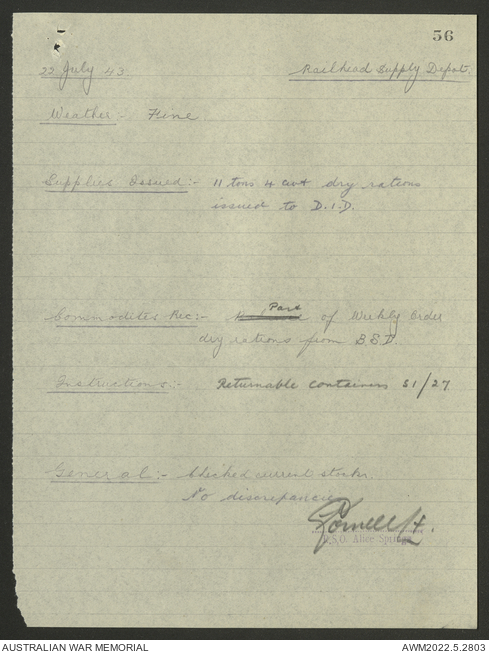 56
22 July 43.
Railhead Supply Depot.
Weather - Fine
Supplies Issued:- 11 tons 4 cwt dry rations
issued to D.I.D.
Commodites Rec:- Part of Weekly Order
dry rations from B.S.D.
Instructions:- Returnable containers S1/27
General:- Checked current stocks.
No discrepancies
Lt.
R.S.O. Alice Springs
AUSTRALIAN WAR MEMORIAL
AWM2022.5.2803